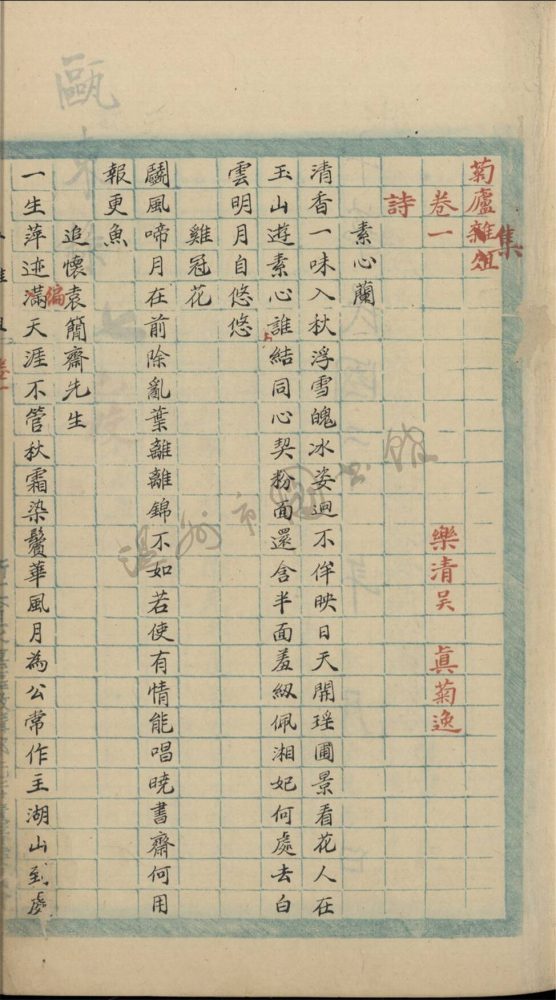 菊廬雜俎
集
卷一
樂清吳 真菊逸
詩
素心蘭
清香一味入秋浮雪魄冰姿迥不侔映日天開瑶圃景看花人在
玉山遊素心誰結同心契粉面還含半面羞紉佩湘妃何處去白
雲明月自悠悠
雞冠花
鬭風啼月在前除亂葉離離錦不如若使有情能唱曉書齋何用
報更魚
追懷袁簡齋先生
一生萍迹滿天涯不管秋霜染鬢華風月為公常作主湖山到處
徧
温州市圖書館